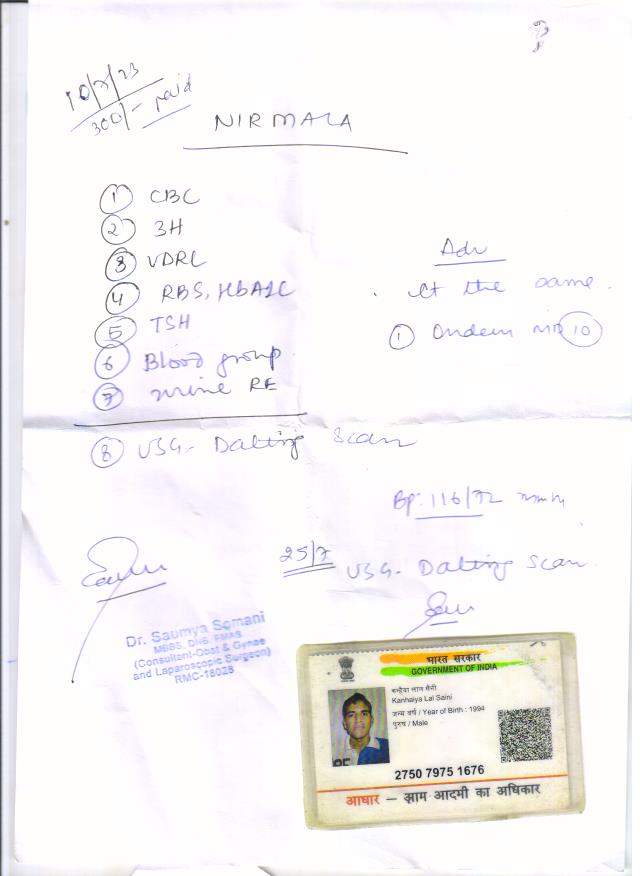 10/7/23
300/- paid
NIRMALA
① CBC
② 3H
③ VDRL
④ RBS, HbA1C
⑤ TSH
⑥ Blood group
⑦ urine RE
⑧ USG- Dating Scan
Adv
Ct the same.
① Ondem MD ⑩
Bp: 116/72 mmHg
25/7 USG- Dating Scan
Dr. Saumya Somani
MBBS, DNB, FMAS
(Consultant-Obst & Gynae
and Laparoscopic Surgeon)
RMC-18028
भारत सरकार
GOVERNMENT OF INDIA
कन्हैया लाल सैनी
Kanhaiya Lal Saini
जन्म वर्ष / Year of Birth : 1994
पुरुष / Male
2750 7975 1676
आधार – आम आदमी का अधिकार